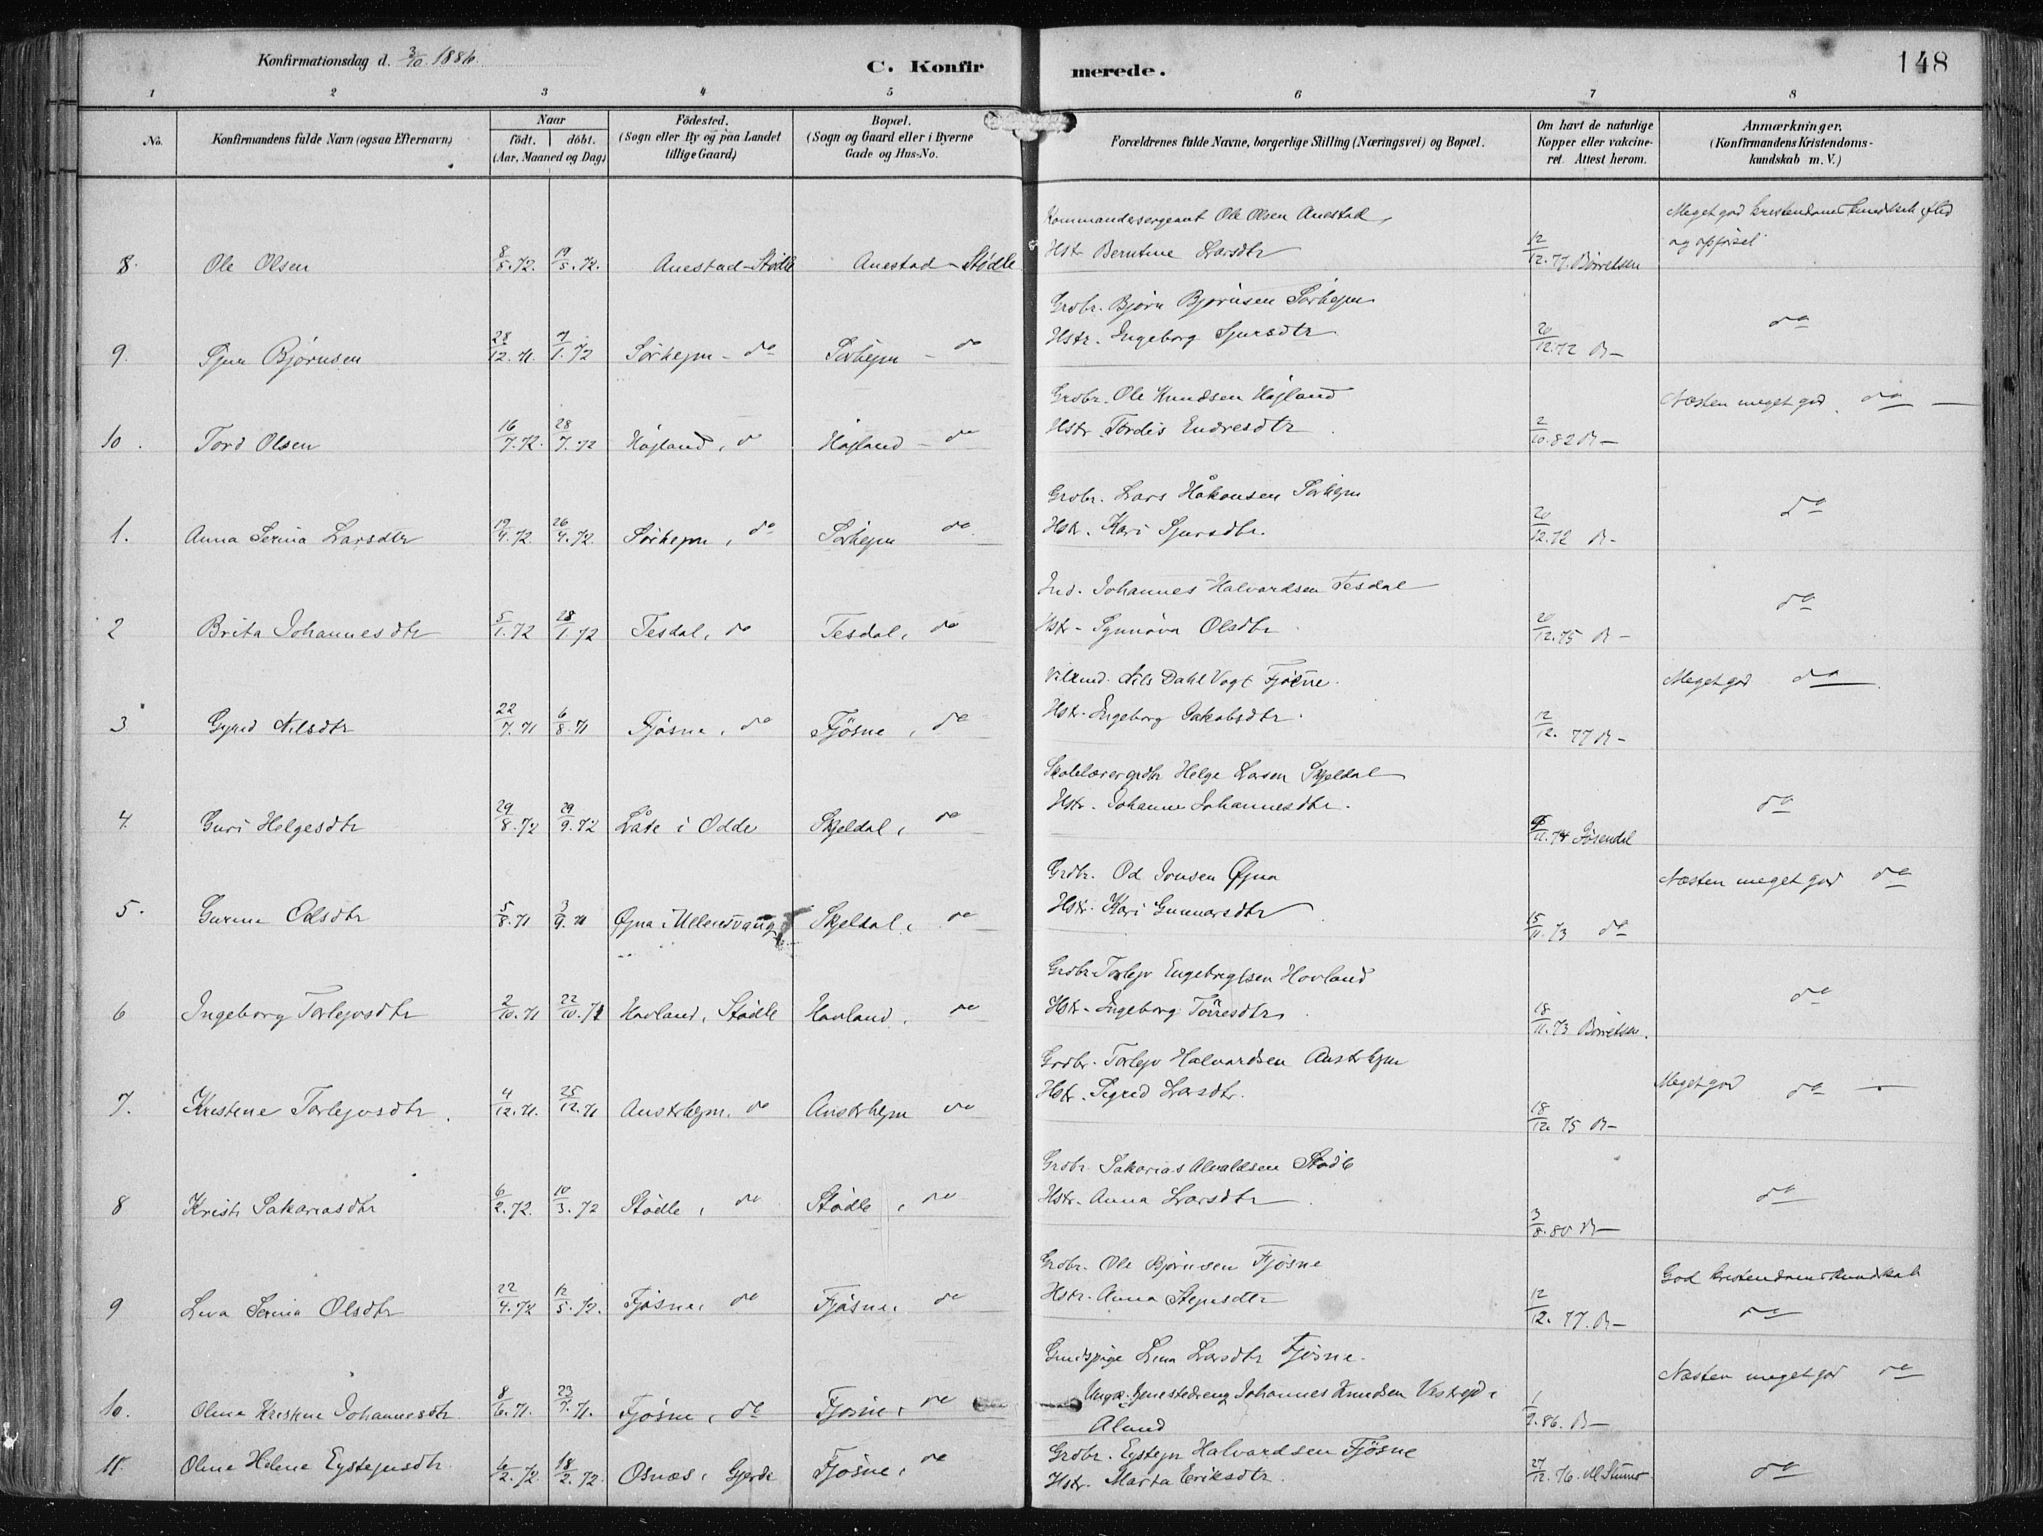 Konfirmationsdag d. 3/10. 1886.
C. Konfirmerede.
148
1 2 3 4 5 6 7 8
No.
Konfirmandens fulde Navn (ogsaa Efternavn)
Naar
födt. döbt.
(Aar, Maaned og Dag)
Födested.
(Sogn eller By og paa Landet
tillige Gaard)
Bopæl.
(Sogn og Gaard eller i Byerne
Gade og Hus-No.
Forældrenes fulde Navne, borgerlige Stilling (Næringsvei) og Bopæl.
Om havt de naturlige
Kopper eller vakcine-
ret. Attest herom.
Anmærkninger.
(Konfirmandens Kristendoms-
kundskab m. V.)
Kommandersergeant Ole Olsen Anestad, Meget god kristendomskundskab, flid
8. Ole Olsen 8/5.72. 19/5.72. Anestad-Stødle Anestad-Stødle Hstr Berntine Larsdtr 12/12.77. Børretsen og opførsel
Grdbr. Bjørn Bjørnsen Sørhejm
9. Sjur Bjørnsen 28/12.71. 7/1.72 Sørhejm - do Sørhejm - do Hstr. Ingeborg Sjursdtr. 20/12.72 B- do
Grdbr. Ole Knudsen Højland Næsten meget god do
10. Tord Olsen 16/7.72. 28/7.72 Højland, do Højland - do Hstr. Tordis Endresdtr 2/10.82 B-
Grdbr. Lars Håkonsen Sørhejm
1. Anna Serina Larsdtr 19/4.72 26/4.72. Sørhejm, do Sørhejm do Hstr. Kari Sjursdtr. 20/12.72 B- do
Ind. Johannes Halvardsen Tesdal
2 Brita Johannesdtr 5/1.72 28/1.72 Tesdal, do Tesdal, do Hstr- Synnøva Olsdtr 20/12.75 B- do
Nils Dahl Vogt Fjøsne. Meget god do
3 Gyrid Nilsdtr 22/7.71 6/8.71 Fjøsne, do Fjøsne, do Hstr. Ingeborg Jakobsdtr. 12/12.77 B-
Skolelærer grdbr Helge Larsen Skjeldal
4. Guri Helgesdtr 29/8.72 29/9.72 Låte i Odde Skjeldal, do Hstr. Johanne Johannesdtr. 11.74 do
Grdbr. Od Jonsen Øjna Næsten meget god do
5. Odsdtr 5/8.71 3/9.71 Øjna i Ullensvang Skjeldal, do Hstr. Kari Gunnarsdtr 15/11.73 do
Grdbr Torlejv Engebregtsen Hovland
6 Ingeborg Torlejvsdtr 2/10.71 22/10.71 Hovland, Stødle Hovland, do Hstr- Ingeborg Tørresdtr, 18/11.73 Børretsen. do
Grdbr. Torlejv Halvardsen Austrhejm
7. Kristine Torlejvsdtr. 4/12.71. 25/12.71 Austrhejm, do Austrhejm do Hstr. Sigrid Larsdtr. 18/12.75 B- Meget god do
Grdbr. Sakarias Alvaldsen Stødle
8 Kristi Sakariasdtr 6/2.72. 10/3.72 Stødle, do Stødle, do Hstr. Anna Larsdtr 3/8.80 B- do
Grdbr. Ole Bjørnsen Fjøsne God kristendomskundskab
9 Liva Serina Olsdtr 22/4.72 12/5.72. Fjøsne, do Fjøsne, do Hstr. Anna 12/12.77. B- do
Lina Larsdtr Fjøsne. Næsten meget god do
10. Oline Kristine Johannesdtr. 8/6.71. 23/7.71. Fjøsne, do Fjøsne, do Ungk. Johannes Knudsen i 1/9.86. B-
Ølund
Grdbr. Eystejn Halvardsen Fjøsne
11. Oline Helene Eystejnsdtr. 6/2.72. 18/2.72. Osnæs, Gjerde Fjøsne, do Hstr. Marta Eriksdtr. 27/12.76. do